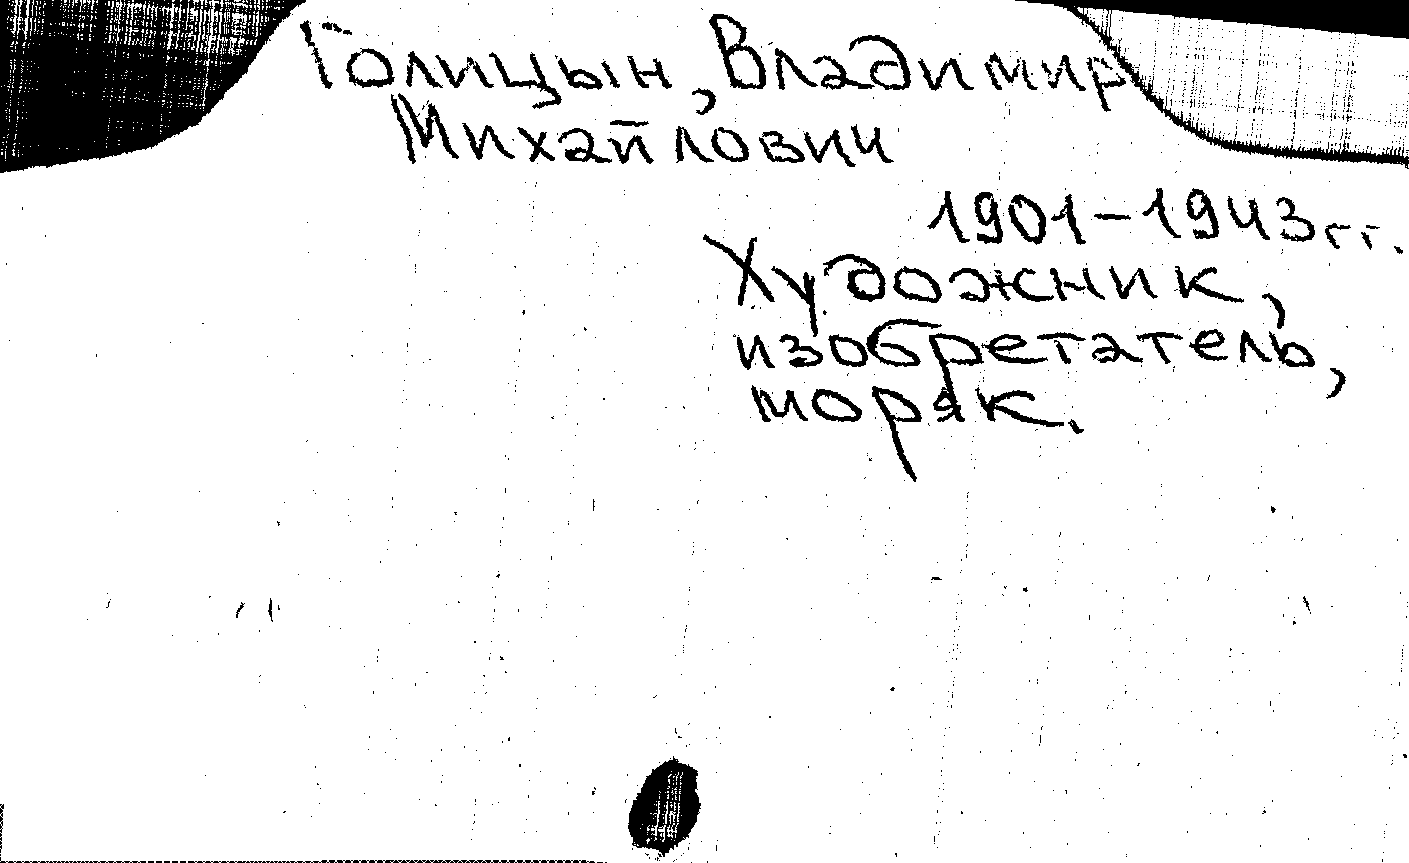 Голицын, Владимир
Михайлович
1901-1943гг.
Художник,
изобретатель,
моряк.